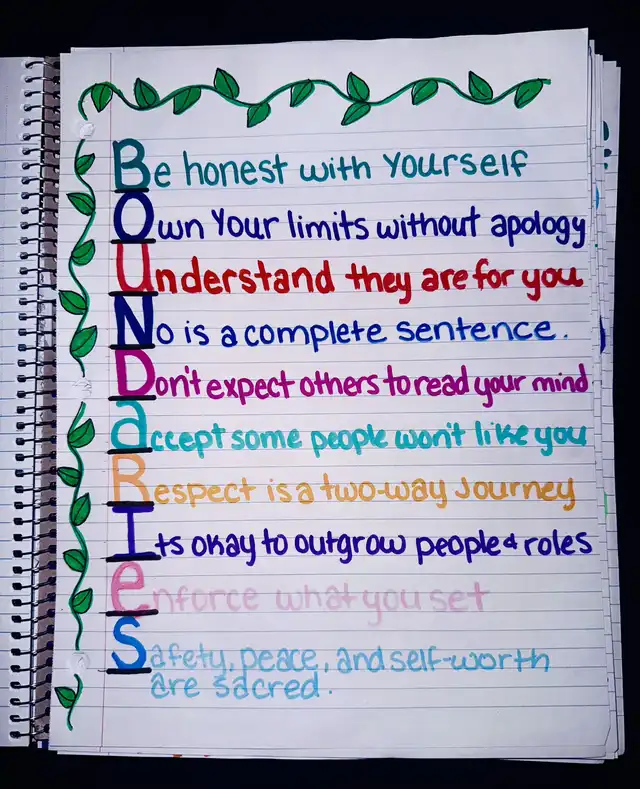 Be honest with Yourself
Own Your limits without apology
Understand they are for you
No is a complete sentence.
Don't expect others to read your mind
accept some people won't like you
Respect is a two-way Journey
Its okay to outgrow people & roles
enforce what you set
Safety, peace, and self-worth
are sacred.